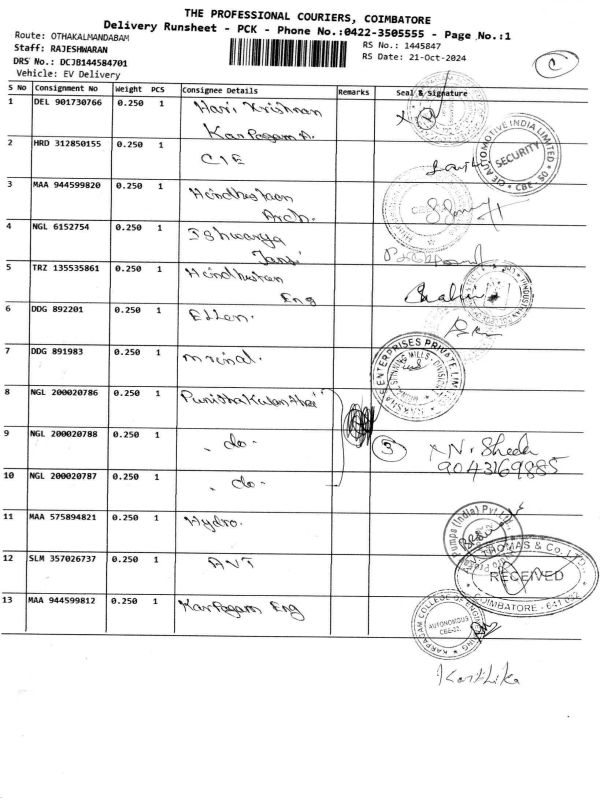 THE PROFESSIONAL COURIERS, COIMBATORE
Delivery Runsheet - PCK - Phone No.:0422-3505555 - Page No.:1
Route: OTHAKALMANDABAM
RS No.: 1445847
Staff: RAJESHWARAN
RS Date: 21-Oct-2024
DRS No.: DCJB144584701
C
Vehicle: EV Delivery
S No Consignment No Weight PCS Consignee Details Remarks Seal & Signature
1 DEL 901730766 0.250 1 Hari Krishnan
Karpagam A.
2 HRD 312850155 0.250 1 CIE
CIE AUTOMOTIVE INDIA LIMITED
SECURITY
* CBE - 50 *
3 MAA 944599820 0.250 1 Hindhustan
Arch.
4 NGL 6152754 0.250 1 Ishwarya
5 TRZ 135535861 0.250 1 Hindhustan
Eng
6 DDG 892201 0.250 1 Ellen.
7 DDG 891983 0.250 1 mrinal.
ENTERPRISES PRIVATE LIMITED
SPINNING MILLS - DIVISION
8 NGL 200020786 0.250 1
9 NGL 200020788 0.250 1 - do -
3 X N. Sheela
9043169885
10 NGL 200020787 0.250 1 - do -
11 MAA 575894821 0.250 1 Hydro.
Pumps (India) Pvt Ltd.
12 SLM 357026737 0.250 1 ANT
THOMAS & Co. LTD.
RECEIVED
COIMBATORE - 641 032
13 MAA 944599812 0.250 1 Karpagam Eng
KARPAGAM COLLEGE OF ENGINEERING
AUTONOMOUS
CBE-32.
Karthika